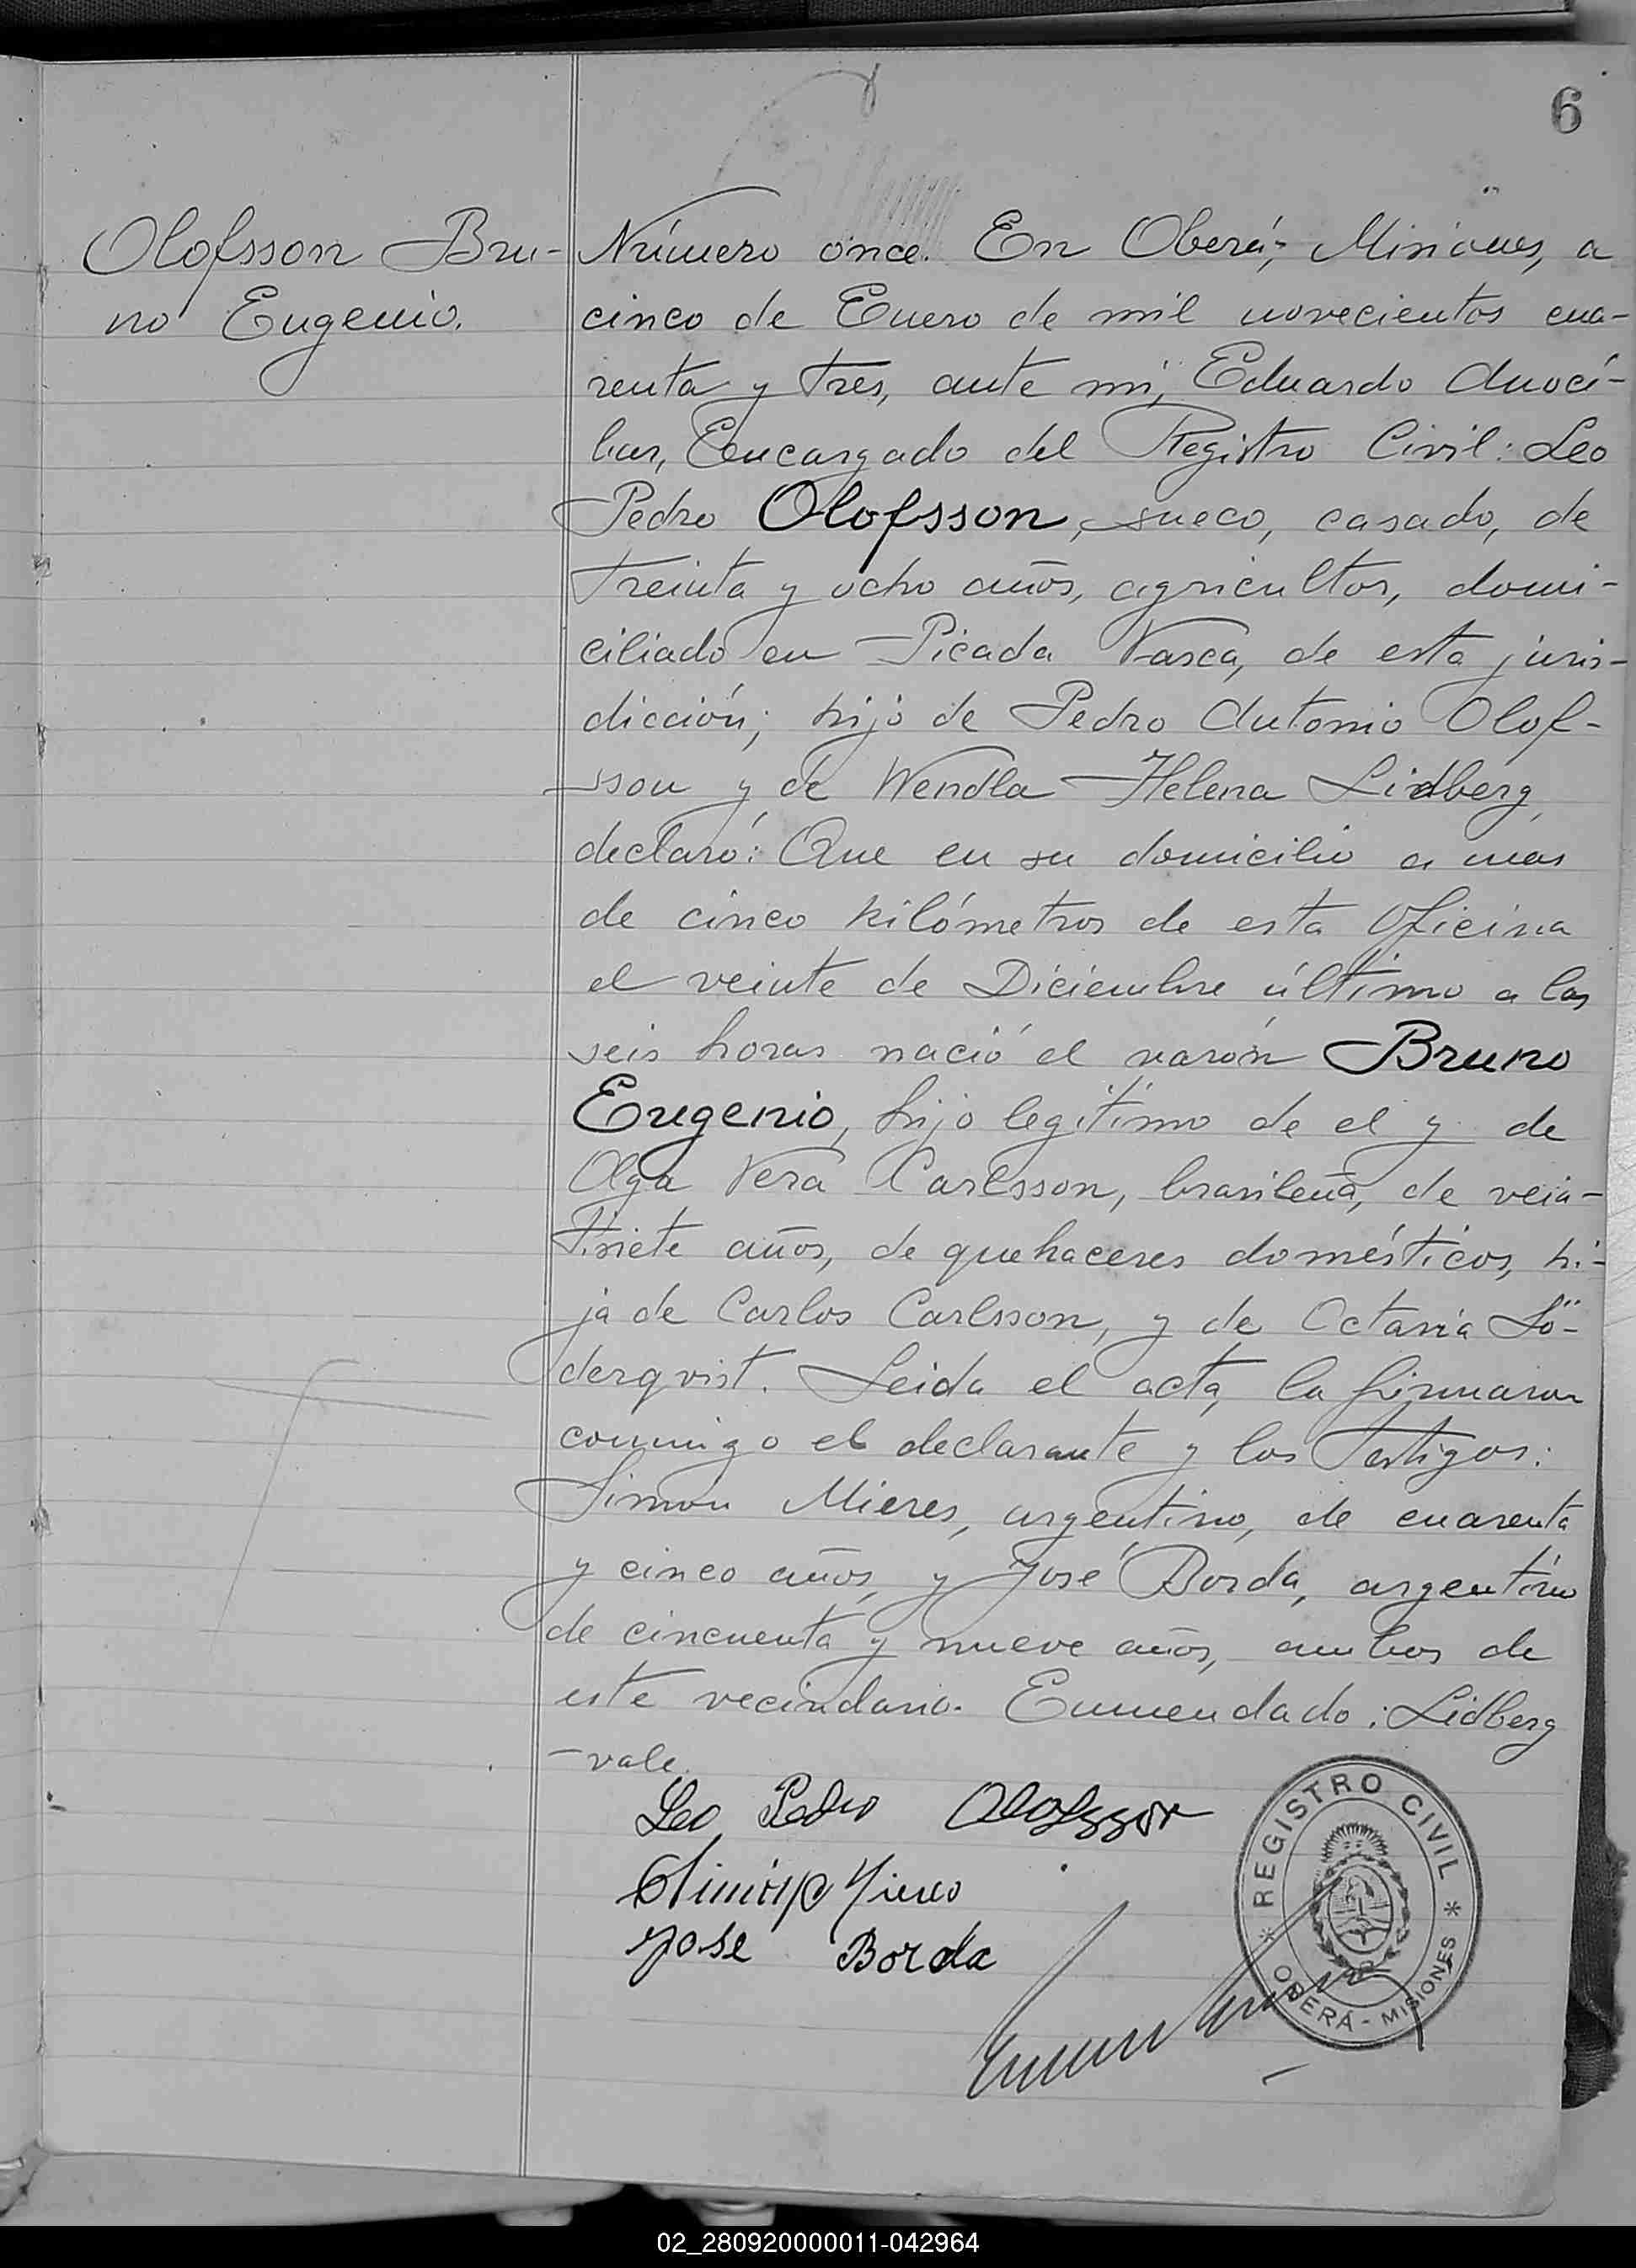 6
Olofsson Bru-
no Eugenio.
Número once. En Oberá, Misiones, a
cinco de Enero de mil novecientos cua-
renta y tres, ante mi, Eduardo Anoci-
bar, Encargado del Registro Civil: Leo
Pedro Olofsson, sueco, casado, de
treinta y ocho años, agricultor, domi-
ciliado en Picada Vasca, de esta juris-
dicción; hijo de Pedro Antonio Olof-
sson y de Wendla Helena Lidberg,
declaró: Que en su domicilio a mas
de cinco kilómetros de esta Oficina
el veinte de Diciembre último a las
seis horas nació el varón Bruno
Eugenio, hijo legítimo de el y de
Olga Vera Carlsson, brasileña, de vein-
tisiete años, de quehaceres domésticos, hi-
ja de Carlos Carlsson, y de Octavia Sö-
derqvist. Leida el acta, la firmaron
conmigo el declarante y los testigos:
Simon Mieres, argentino, de cuarenta
y cinco años, y José Borda, argentino
de cincuenta y nueve años, ambos de
este vecindario. Enmendado: Lidberg
-vale.
Leo Pedro Olofsson
Jose Borda
REGISTRO CIVIL
* OBERÁ - MISIONES *
02_280920000011-042964